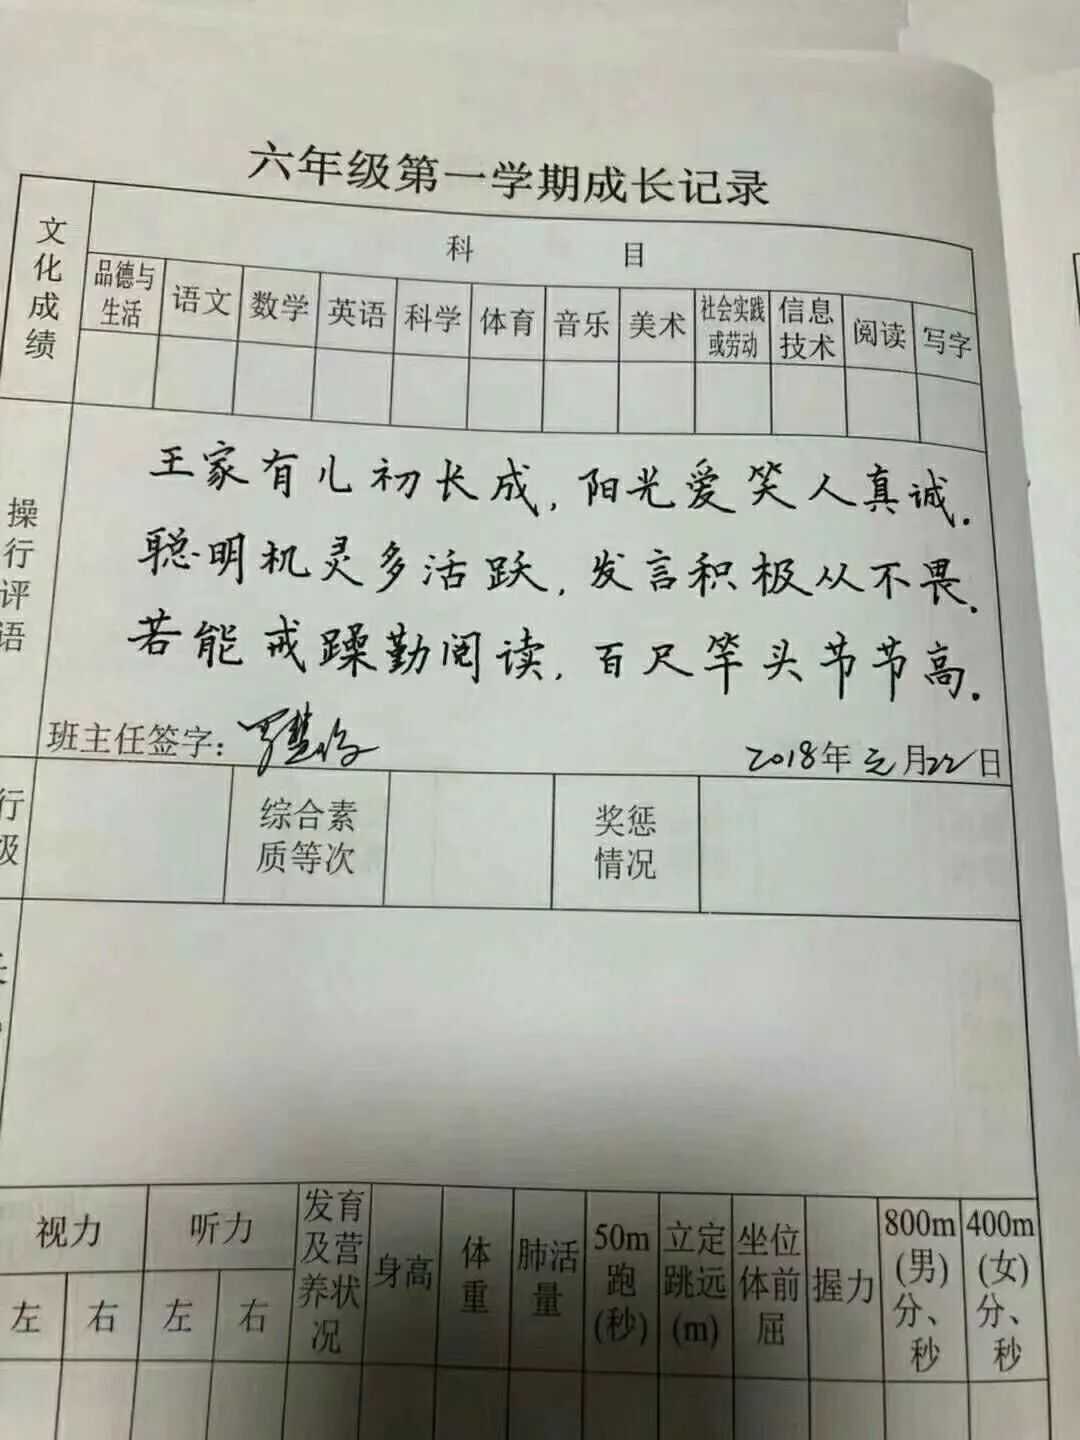 六年级第一学期成长记录
文化成绩
科 目
品德与生活 语文 数学 英语 科学 体育 音乐 美术 社会实践或劳动 信息技术 阅读 写字
操行评语
王家有儿初长成，阳光爱笑人真诚.
聪明机灵多活跃，发言积极从不畏.
若能戒躁勤阅读，百尺竿头节节高.
班主任签字：
2018年元月22日
行 级
综合素质等次
奖惩情况
视力 听力 发育及营养状况 身高 体重 肺活量 50m跑(秒) 立定跳远(m) 坐位体前屈 握力 800m(男)分、秒 400m(女)分、秒
左 右 左 右